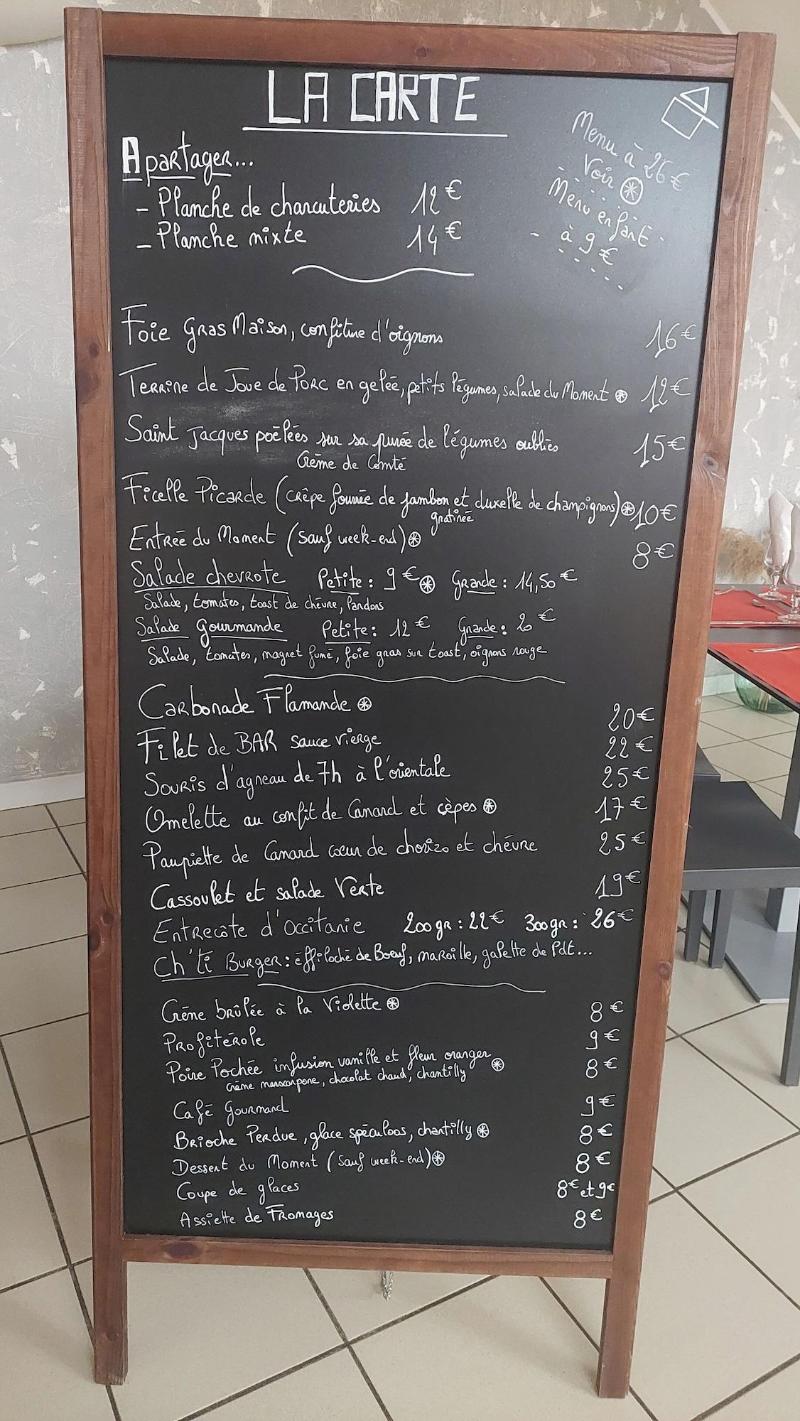 LA CARTE
Menu à 26€
Voir ⊛
Menu enfant
à 9€
A partager...
- Planche de charcuteries 12€
- Planche mixte 14€
Foie Gras Maison, confiture d'oignons 16€
Terrine de Joue de Porc en gelée, petits légumes, salade du Moment ⊛ 12€
Saint Jacques poêlées sur sa purée de légumes oubliés 15€
Crème de Comté
Ficelle Picarde (crêpe fourrée de jambon et duxelle de champignons) ⊛ 10€
gratinée
Entrée du Moment (sauf week-end) ⊛ 8€
Salade chevrote Petite : 9€ ⊛ Grande : 14,50€
Salade, tomates, toast de chèvre, lardons
Salade Gourmande Petite : 12€ Grande : €
Salade, tomates, magret fumé, foie gras sur toast, oignons rouge
Carbonade Flamande ⊛ 20€
Filet de BAR sauce vierge 22€
Souris d'agneau de 7h à l'orientale 25€
Omelette au confit de Canard et cèpes ⊛ 17€
Paupiette de Canard cœur de chorizo et chèvre 25€
Cassoulet et salade Verte 19€
Entrecôte d'Occitanie 200gr : 22€ 300gr : 26€
Ch'ti Burger : effiloché de Boeuf, maroille, galette de Pdt...
Crème brûlée à la Violette ⊛ 8€
Profiterole 9€
Poire Pochée infusion vanille et fleur oranger ⊛ 8€
crème mascarpone, chocolat chaud, chantilly
Café Gourmand 9€
Brioche Perdue, glace spéculoos, chantilly ⊛ 8€
Dessert du Moment (sauf week-end) ⊛ 8€
Coupe de glaces 8€ et 9€
Assiette de Fromages 8€